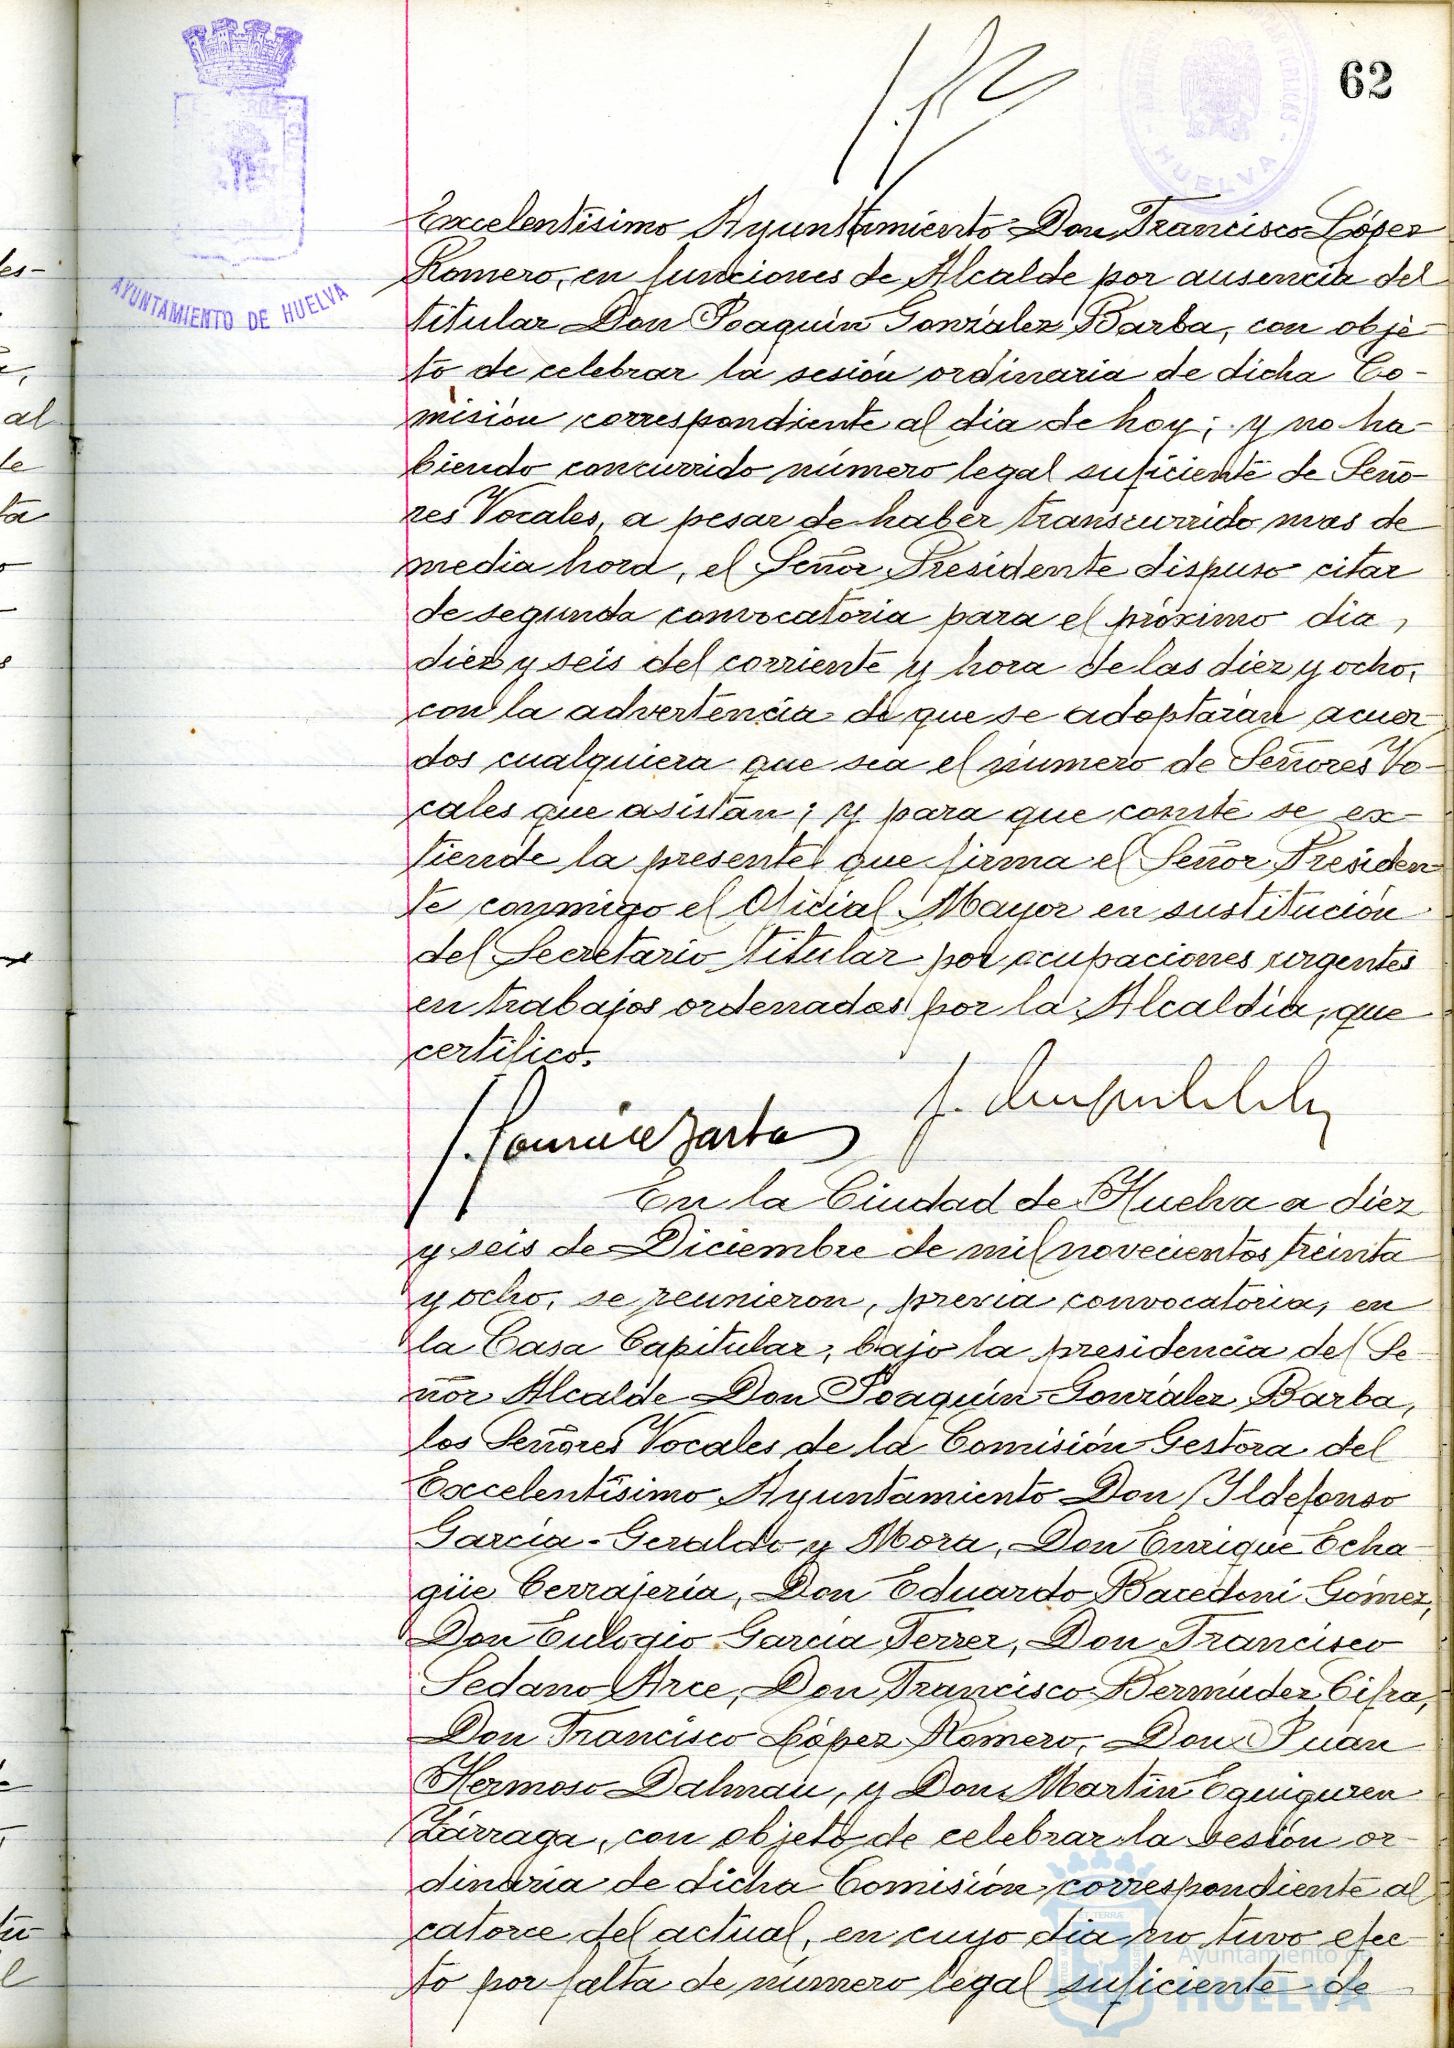 62
HUELVA
AYUNTAMIENTO DE HUELVA
Excelentísimo Ayuntamiento Don Francisco López
Romero, en funciones de Alcalde por ausencia del
titular Don Joaquín González Barba, con obje-
to de celebrar la sesión ordinaria de dicha Co-
misión correspondiente al día de hoy; y no ha-
biendo concurrido número legal suficiente de Seño-
res Vocales, a pesar de haber transcurrido mas de
media hora, el Señor Presidente dispuso citar
de segunda convocatoria para el próximo dia,
diez y seis del corriente y hora de las diez y ocho,
con la advertencia de que se adoptarán acuer-
dos cualquiera que sea el número de Señores Vo-
cales que asistan; y para que conste se ex-
tiende la presente que firma el Señor Presiden-
te conmigo el Oficial Mayor en sustitución
del Secretario titular por ocupaciones urgentes
en trabajos ordenados por la Alcaldía, que
certifico.
En la Ciudad de Huelva a diez
y seis de Diciembre de mil novecientos treinta
y ocho, se reunieron, previa convocatoria, en
la Casa Capitular, bajo la presidencia del Se-
ñor Alcalde Don Joaquín González Barba,
los Señores Vocales de la Comisión Gestora del
Excelentísimo Ayuntamiento Don Ildefonso
García-Geraldo y Mora, Don Enrique Echa-
güe Cerrajería, Don Eduardo Bacedoni Gómez,
Don Eulogio García Ferrer, Don Francisco
Sedano Arce, Don Francisco Bermúdez Cifra,
Don Francisco López Romero, Don Juan
Hermoso Dalmau, y Don Martín Eguiguren
Zárraga, con objeto de celebrar la sesión or-
dinaria de dicha Comisión correspondiente al
catorce del actual, en cuyo dia no tuvo efec-
to por falta de número legal suficiente de
Ayuntamiento de
HUELVA